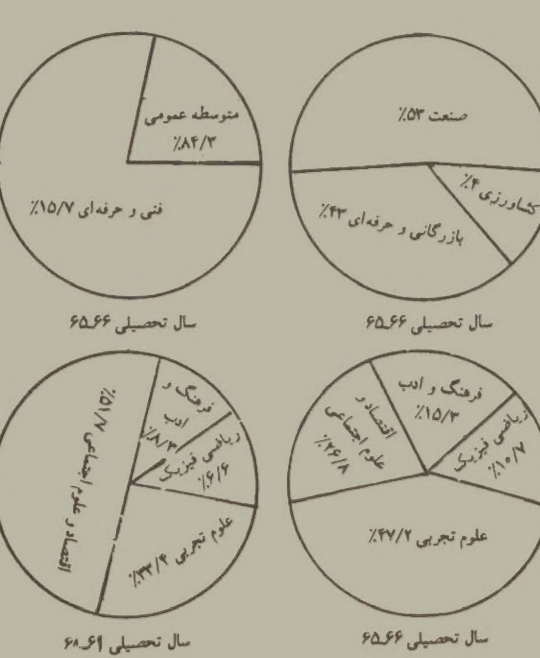 صنعت ۵۳٪
کشاورزی ۴٪
بازرگانی و حرفه‌ای ۴۳٪
سال تحصیلی ۶۵ـ۶۶
متوسطه عمومی
۸۴/۳٪
فنی و حرفه‌ای ۱۵/۷٪
سال تحصیلی ۶۵ـ۶۶
فرهنگ و ادب
۱۵/۳٪
ریاضی فیزیک
۱۰/۷٪
اقتصاد و
علوم اجتماعی
۲۶/۸٪
علوم تجربی ۴۷/۲٪
سال تحصیلی ۶۵ـ۶۶
فرهنگ و
ادب
۸/۳٪
ریاضی فیزیک
۶/۶٪
علوم تجربی ۳۳/۴٪
اقتصاد و علوم اجتماعی ۵۱/۷٪
سال تحصیلی ۶۸ـ۶۹